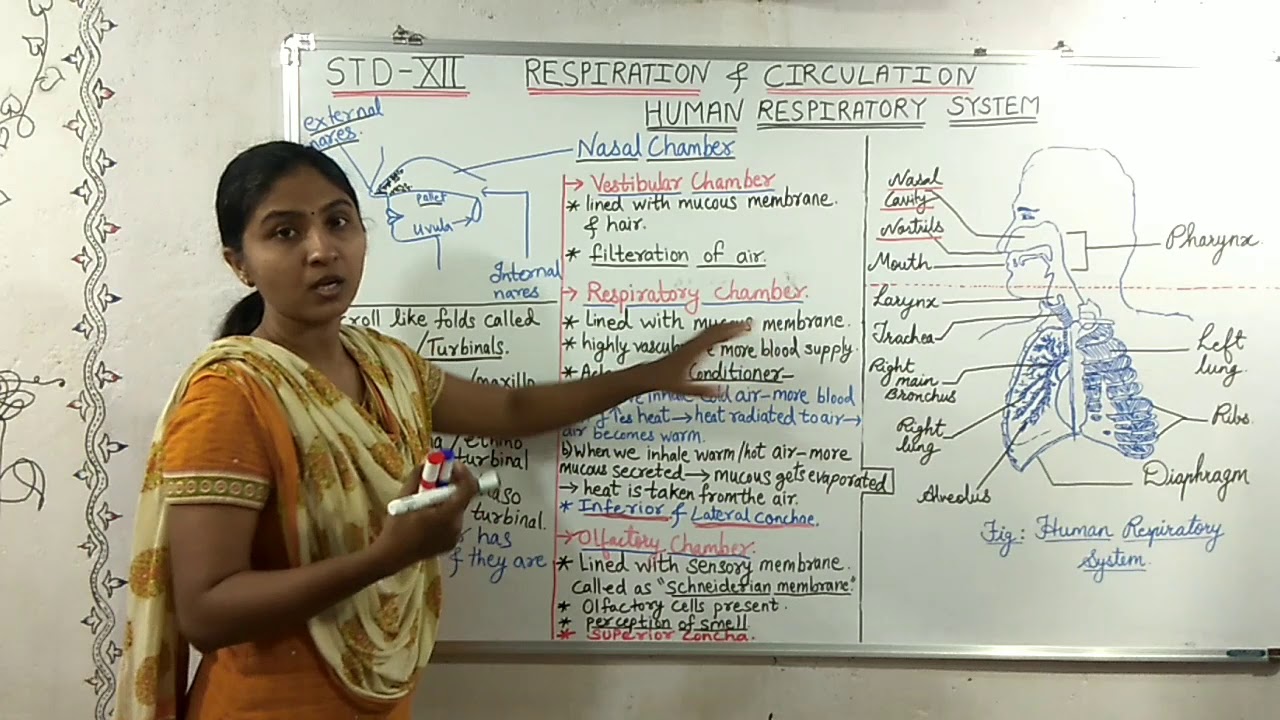 STD-XII RESPIRATION & CIRCULATION
HUMAN RESPIRATORY SYSTEM
external
nares.
Pallet
Uvula
Internal
nares
roll like folds called
/Turbinals.
turbinal
turbinal.
has
& they are
Nasal Chamber
→ Vestibular Chamber
* lined with mucous membrane.
& hair.
* filteration of air.
→ Respiratory chamber.
* Lined with mucous membrane.
* highly more blood supply.
* Conditioner-
inhale cold air-more blood
heat → heat radiated to air →
air becomes warm.
b) When we inhale warm/hot air-more
mucous secreted → mucous gets evaporated
→ heat is taken from the air.
* Inferior & Lateral conchae.
→ Olfactory Chamber.
* Lined with sensory membrane.
Called as "Schneiderian membrane"
* Olfactory cells present.
* perception of smell
* Superior Concha.
Nasal
Cavity
Nostrils
Mouth
Pharynx
Larynx
Trachea
Right
main
Bronchus
Right
lung
Alveolus
Left
lung.
Ribs.
Diaphragm
Fig: Human Repiratory
System.